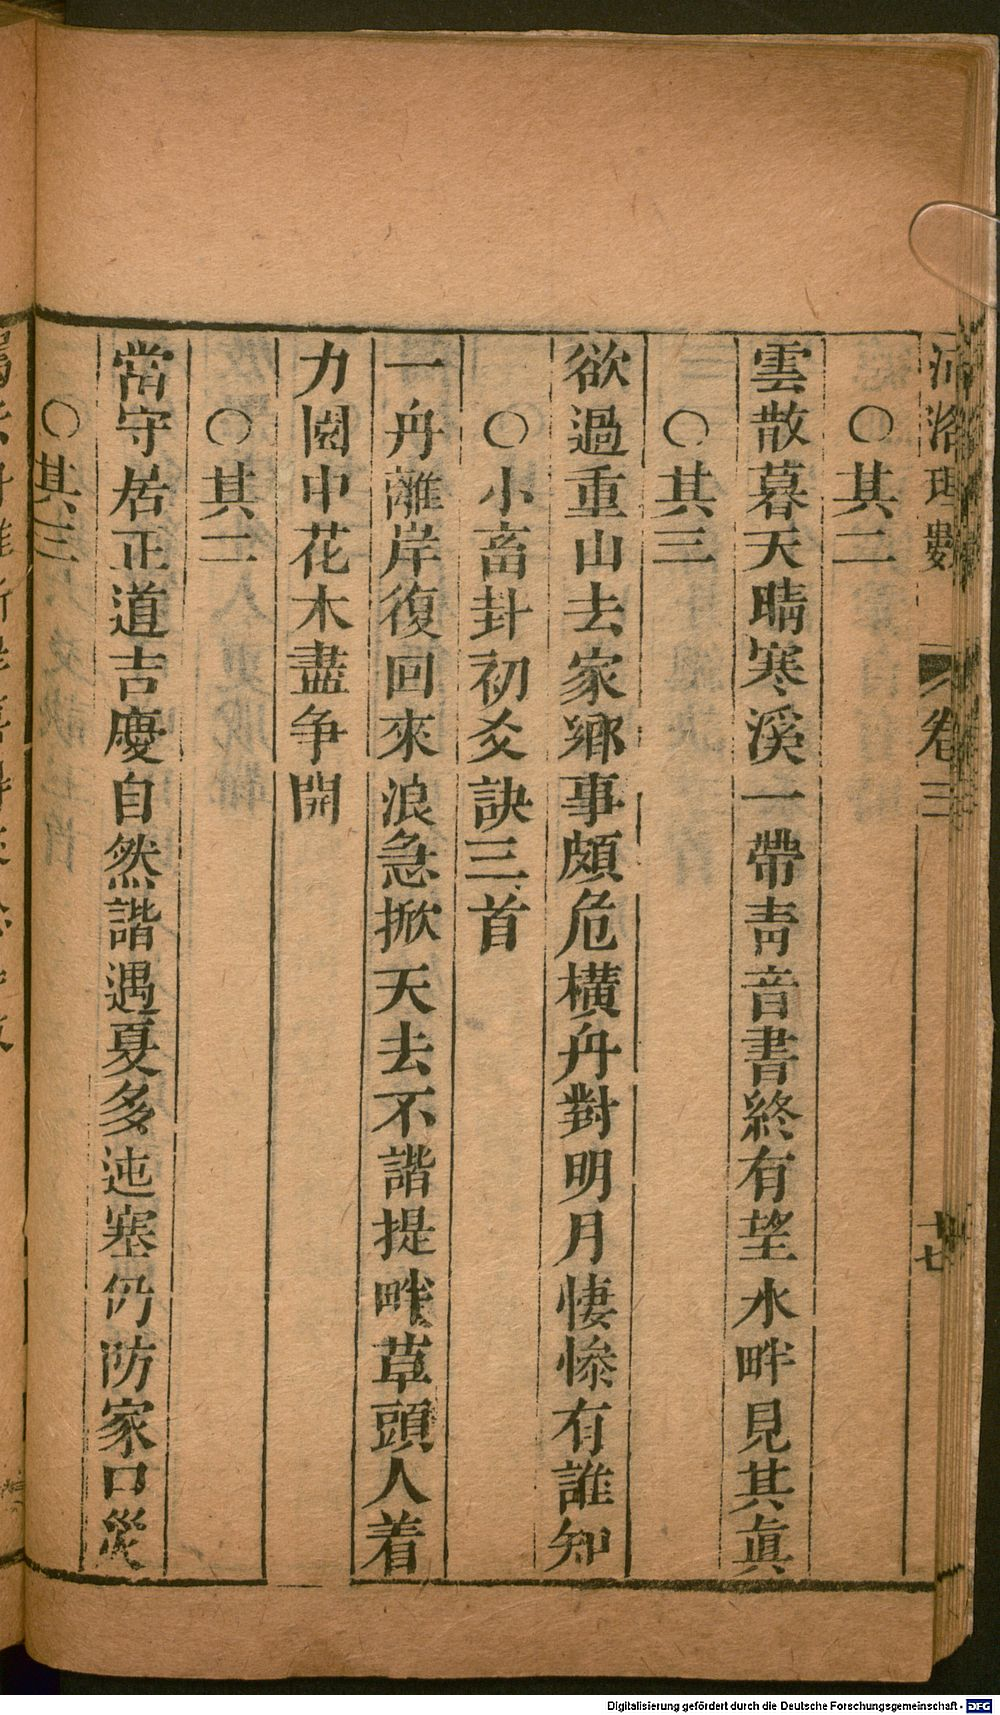 河洛理數
卷三
十七
○其二
雲散暮天晴寒溪一帶靑音書終有望水畔見其眞
○其三
欲過重山去家鄉事頗危橫舟對明月悽慘有誰知
○小畜卦初爻訣三首
一舟離岸復回來浪急掀天去不諧提畔草頭人着
力園中花木盡争開
○其二
當守居正道吉慶自然諧遇夏多迍塞仍防家口災
○其三
Digitalisierung gefördert durch die Deutsche Forschungsgemeinschaft - DFG